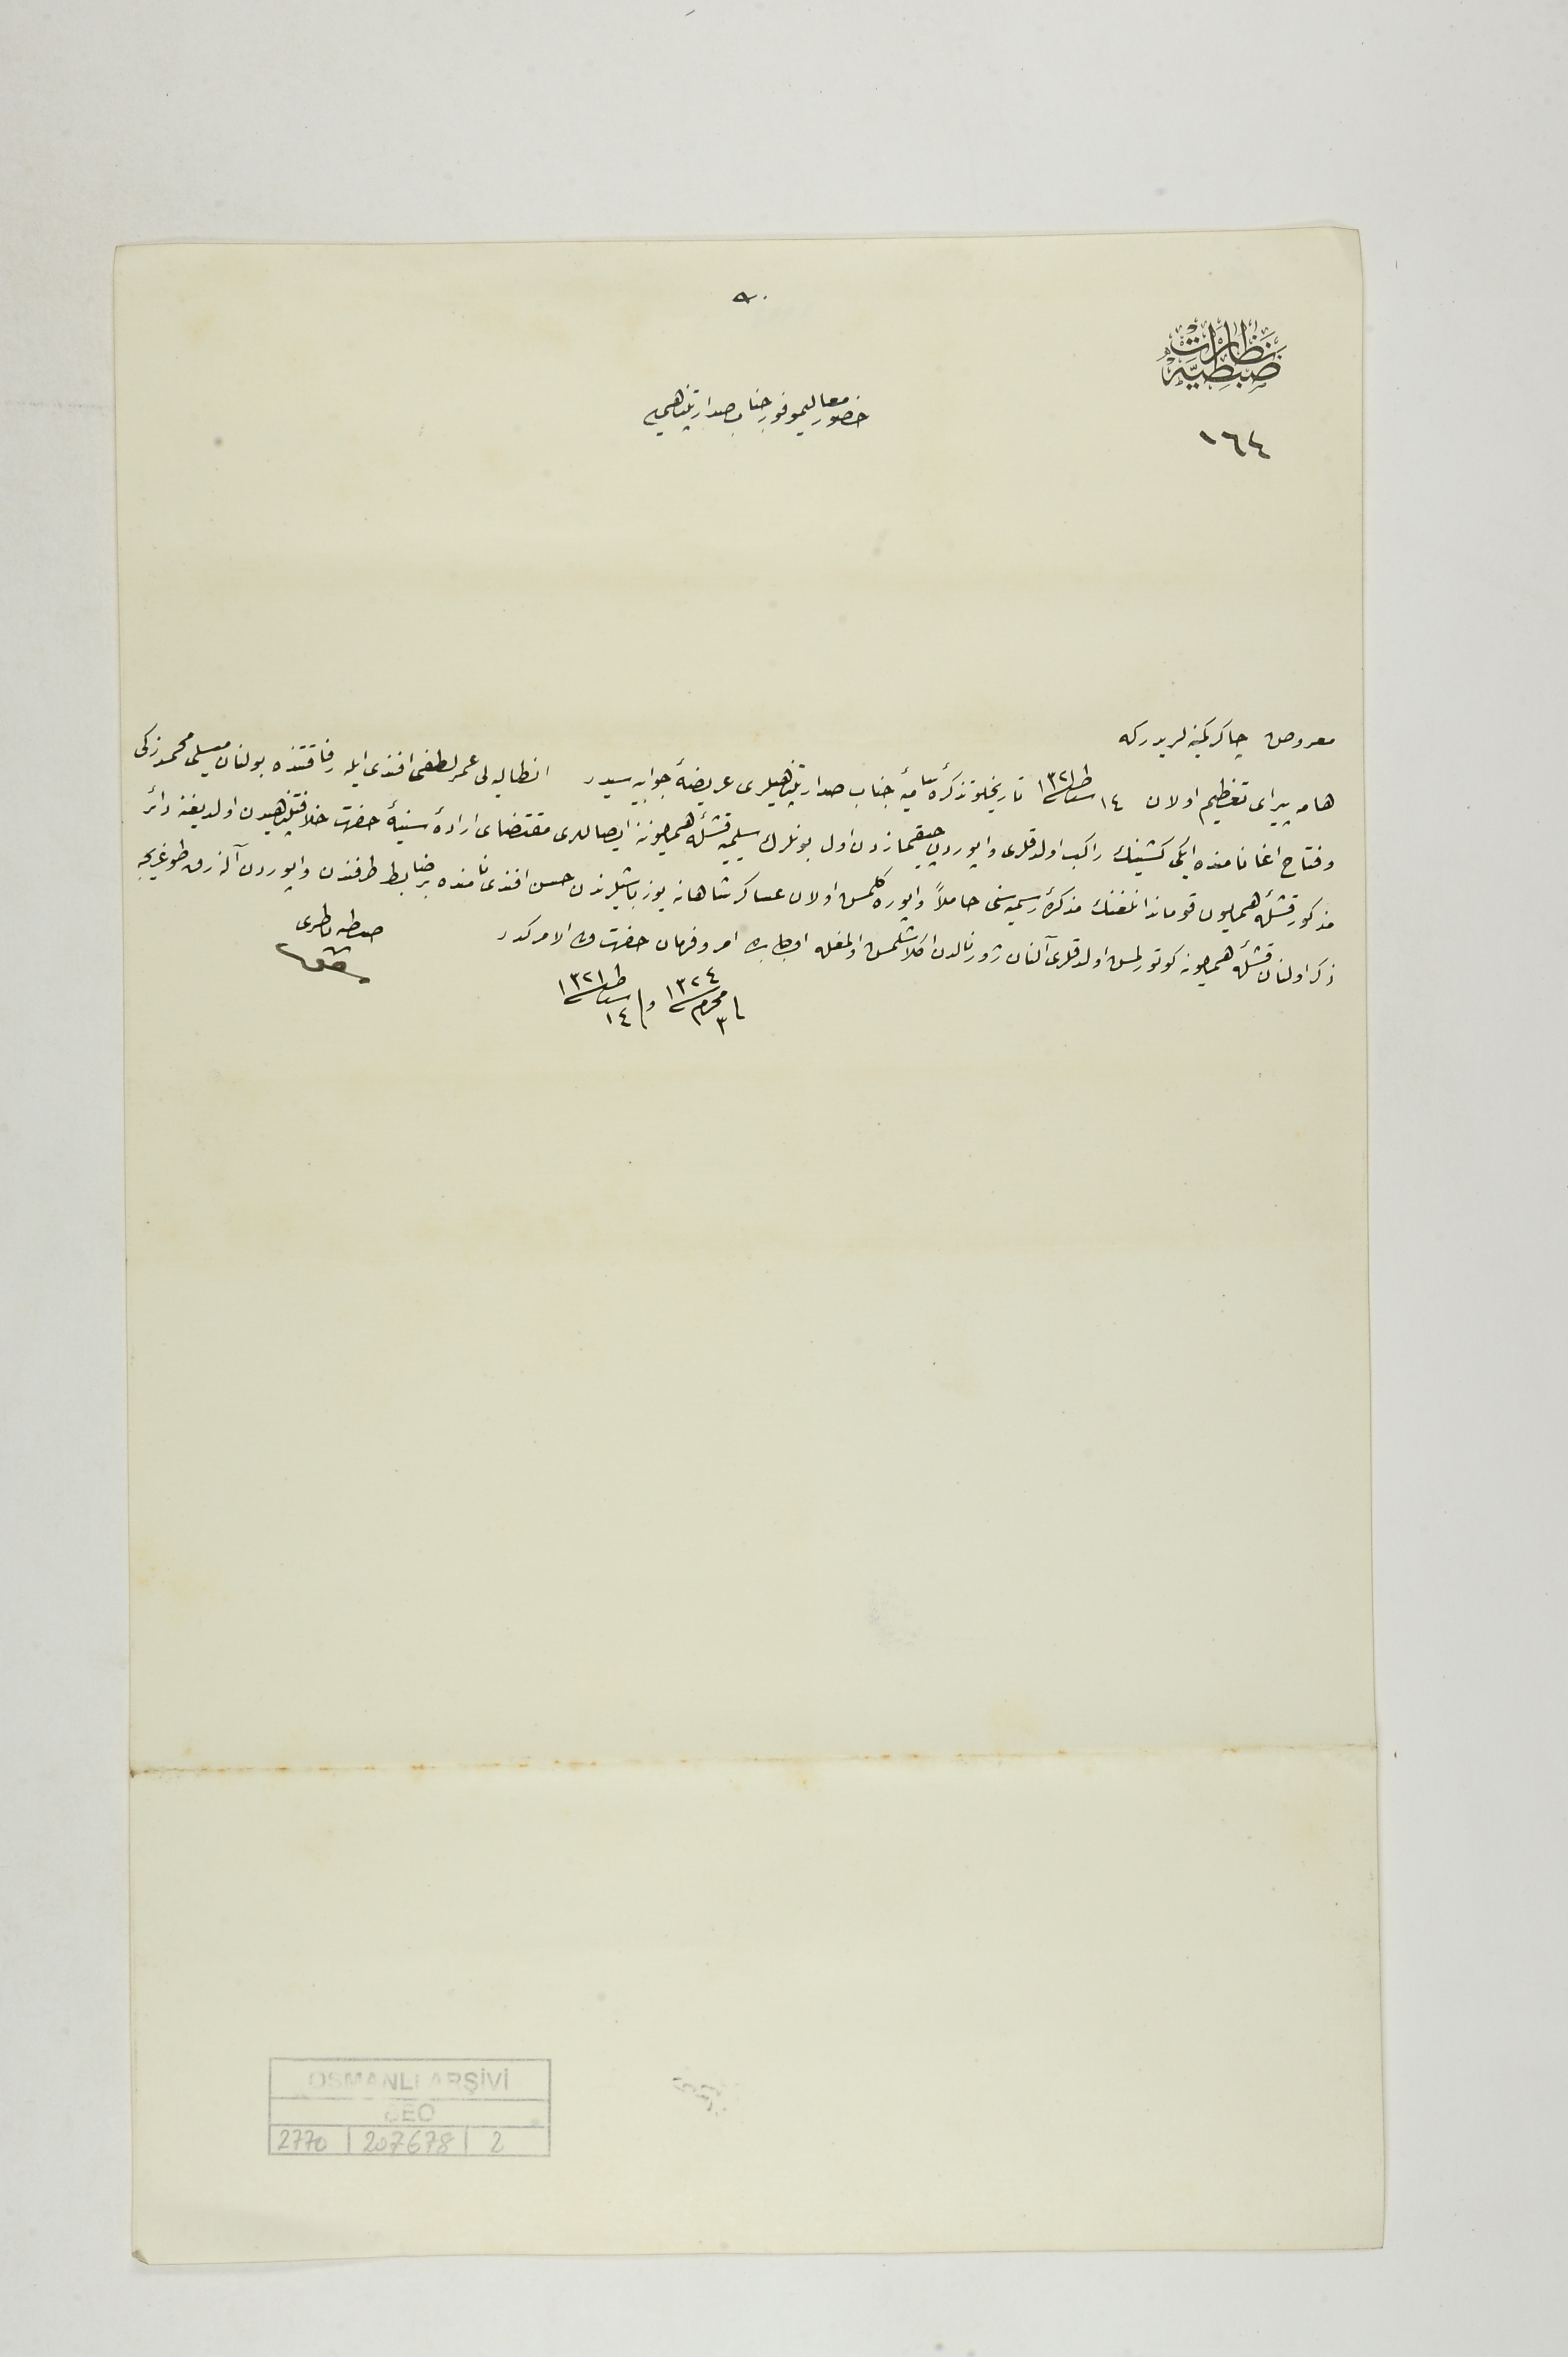 نظارت
ضبطیه
١٦٤
حضور معالیموفور جناب صدارتپناهی‌یه
معروض چاكر كمینه‌لریدر كه
هامه پیرای تعظیم اولان ١٤ شباط ١٣٢١ تاریخلو تذكرهٔ سامیهٔ جناب صدارتپناهیلری عریضهٔ جوابیه‌سیدر انطالیه‌لی عمر لطفی افندی ایله رفاقتنده بولنان میسلی محمد زكی
وفتاح اغا نامنده ایكی كشینك راكب اولدقلری واپوردن چیقمازدن اول بونلرك سلیمیه قشلهٔ همایوننه ایصاللری مقتضای ارادهٔ سنیهٔ حضرت خلافتپناهیدن اولدیغنه دائر
مذكور قشلهٔ همایون قوماندانلغنك مذكرهٔ رسمیه‌سنی حاملاً واپوره كلمش اولان عساكر شاهانه یوزباشیلرندن حسن افندی نامنده بر ضابط طرفندن واپوردن آلنه‌رق طوغریجه
ذكر اولنان قشلهٔ همایونه كوتورلمش اولدقلری آلنان ژورنالدن اكلاشلمش اولمغله اولبابده امر وفرمان حضرت من له الامركدر
فی ٣ محرم ١٣٢٤ و فی ١٤ شباط ١٣٢١
ضبطیه ناظری
OSMANLI ARŞİVİ
BEO
2770 | 207678 | 2